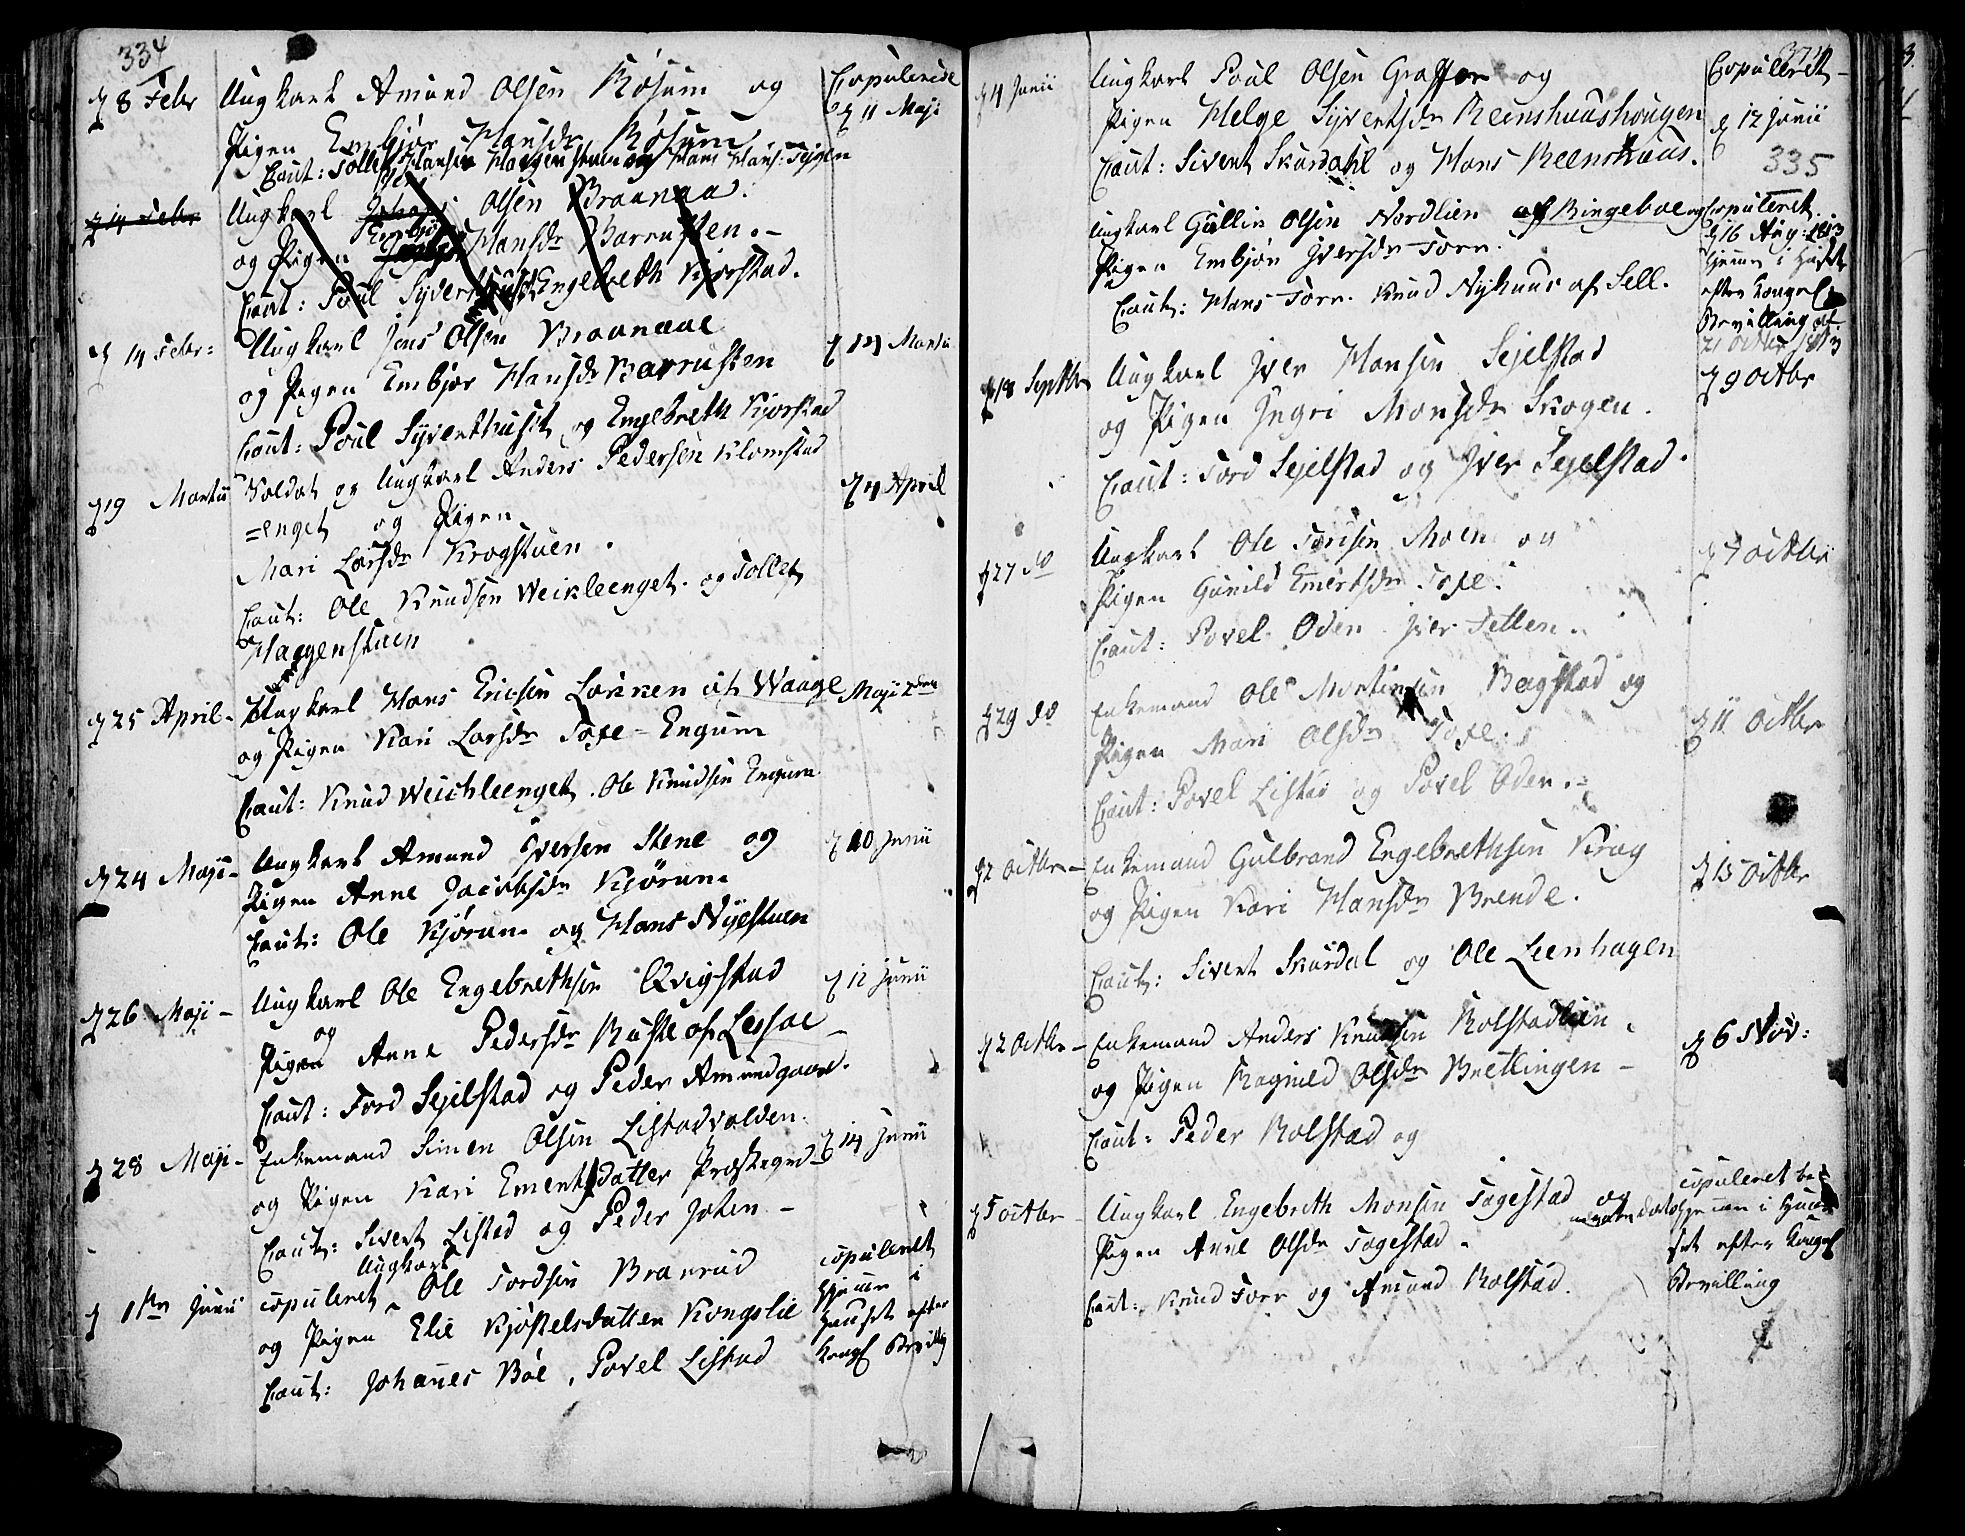 334
d 8 Febr Ungkarl Amund Olsen Røsum og Copulerede
Pigen Embjør Hansdr Røsum d 11 Maji
Caut: Tollef Hansen Haagenstuen og Hans Hans: Tejgen
d 14 Febr Ungkarl Jens Olsen Braanaa.
og Pigen Embjør Hansdr Barrusten.-
Caut: Poul Syverthuset Engebreth Kjorstad.
d 14 Febr: Ungkarl Jens Olsen Braanaae d 14 Martii
og Pigen Embjør Hansdr Barrusten
Caut: Poul Syverthuset og Engebreth Kjorstad
d 19 Martii Soldat og Ungkarl Anders Pedersen Klomstad d 4 April
=enget og Pigen
Mari Larsdr Krogstuen.
Caut: Ole Knudsen Weikleenget. og Tollef
Haagenstuen
d 25 April - Ungkarl Hans Ericsen Lorkken af Waage Maji 2den
og Pigen Kari Larsdr Tofte-Engum
Caut: Knud Weichleenget. Ole Knudsen Engum
d 24 Maji - Ungkarl Amund Iversen Stene og d 10 Junii
Pigen Anne Jacobsdr Kjørum
Caut: Ole Kjørum og Hans Nyestuen
d 26 Maji - Ungkarl Ole Engebrethsen Qvigstad d 12 Junii
og
Pigen Anne Pedersdr Ruste af Lessøe -
Caut: Tord Sejelstad og Peder Amundgaard.
d 28 Maji - Enkemand Simen Olsen Listadvolden d 14 Junii
og Pigen Kari Ementsdatter Præstegrd -
Caut: Sivert Listad og Peder Joten -
Ungkarl
d 1ste Junii copuleret Ole Tordsen Branrud copuleret
og Pigen Elie Kjøstelsdatter Kongslie hjemme i
Huuset efter
Caut: Johanes Bøe, Povel Listad kongl Bevilg
d 4 Junii Ungkarl Poul Olsen Graffer og Copuleret -
Pigen Helge Syvertsdr Reenshuushougen d 12 Junii
Caut: Sivert Skurdahl og Hans Reenshuus. 335
Ungkarl Gullin Olsen Nordlien af Ringeboe og Copuleret
Pigen Embjør Iversdr Torr. d 16 Aug: 1813
Caut: Hans Torr. Knud Nyhuus af Sell. hjemme i Huset
efter kongel
Bevilling af
21 Octbr
d 18 Septbr Ungkarl Iver Hansen Sejelstad d 9 Octbr
og Pigen Ingri Monsdr Skogen.
Caut: Tord Sejelstad og Iver Sejelstad.
d 27 do Ungkarl Ole Tordsen Moen og d 7 Octbr
Pigen Gunild Emertsdr Tofte.
Caut: Povel Oden Iver Tetten.
d 29 do Enkemand Ole Mortensen Bagstad og d 11 Octbr
Pigen Mari Olsdr Tofte.
Caut: Povel Listad og Povel Oden.-
d 2 Octbr - Enkemand Gulbrand Engebrethsen Krog d 15 Octbr
og Pigen Kari Hansdr Brende.
Caut: Sivert Skurdal og Ole Leenhagen
d 2 Octbr - Enkemand Anders Knudsen Rolstadlien d 6 Nov:
og Pigen Ragnild Olsdr Bretlingen -
Caut: Peder Rolstad og
d 5 Octbr - Ungkarl Engebreth Monsen Tagestad og copuleret
Pigen Anne Olsdr Tagestad. hjemme i Huu=
Caut: Knud Torr og Amund Rolstad. set efter kongel
Bevilling